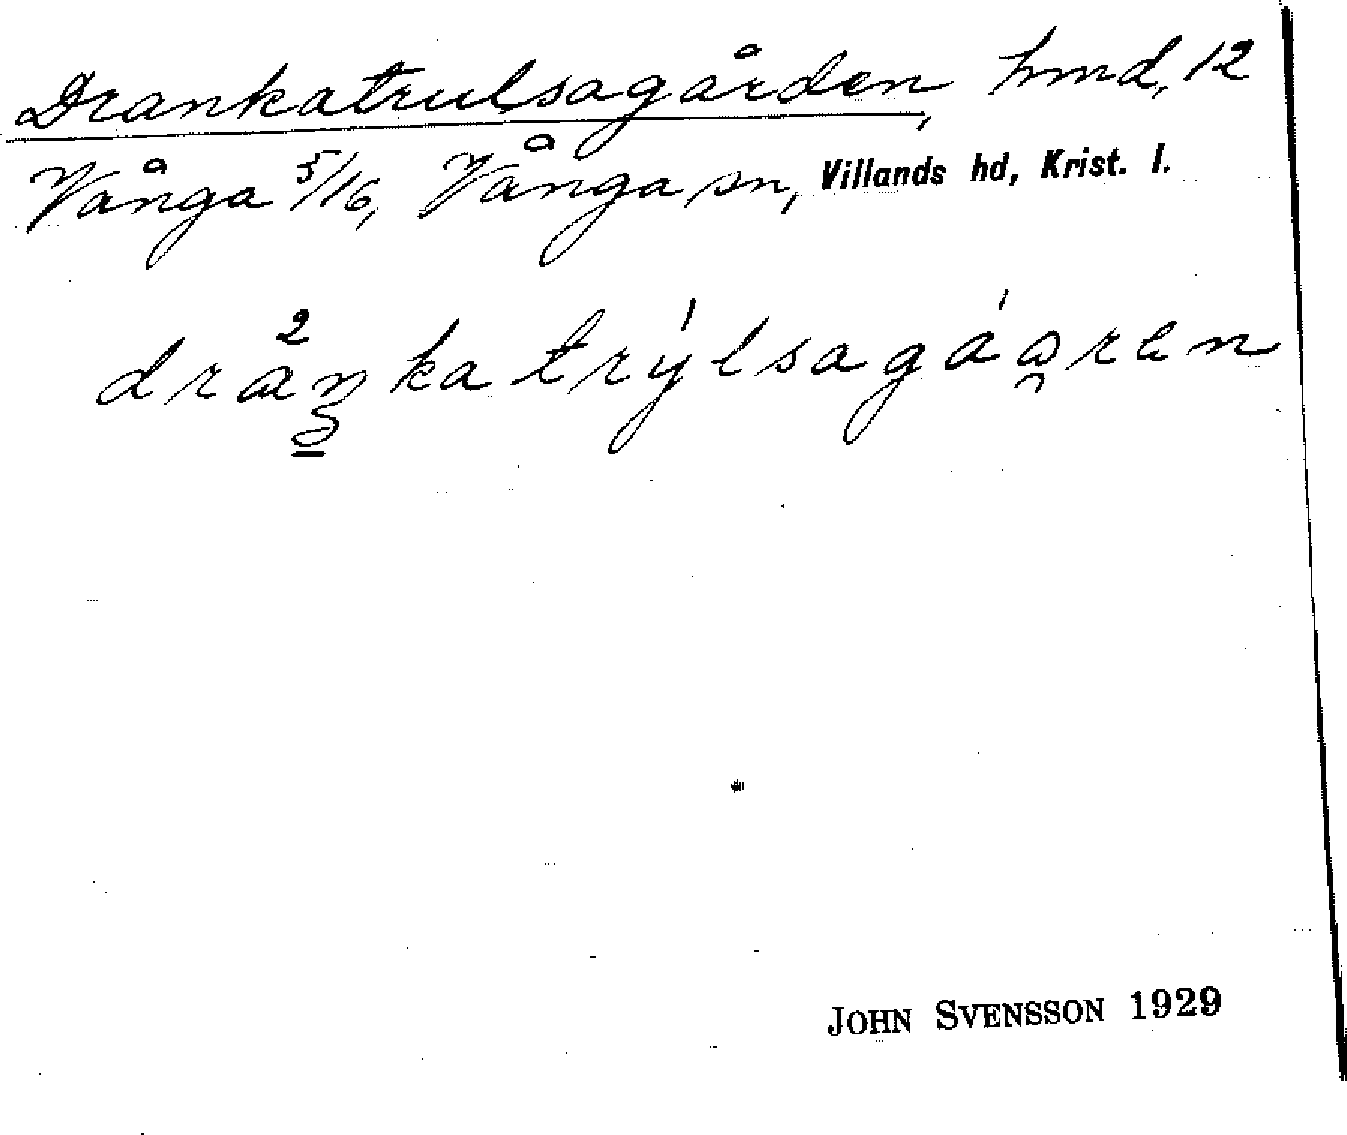 Drankatrulsagården, hmd, 12
Vånga 5/16, Vånga sn, Villands hd, Krist. l.
drankatrýlsagáaren
JOHN SVENSSON 1929